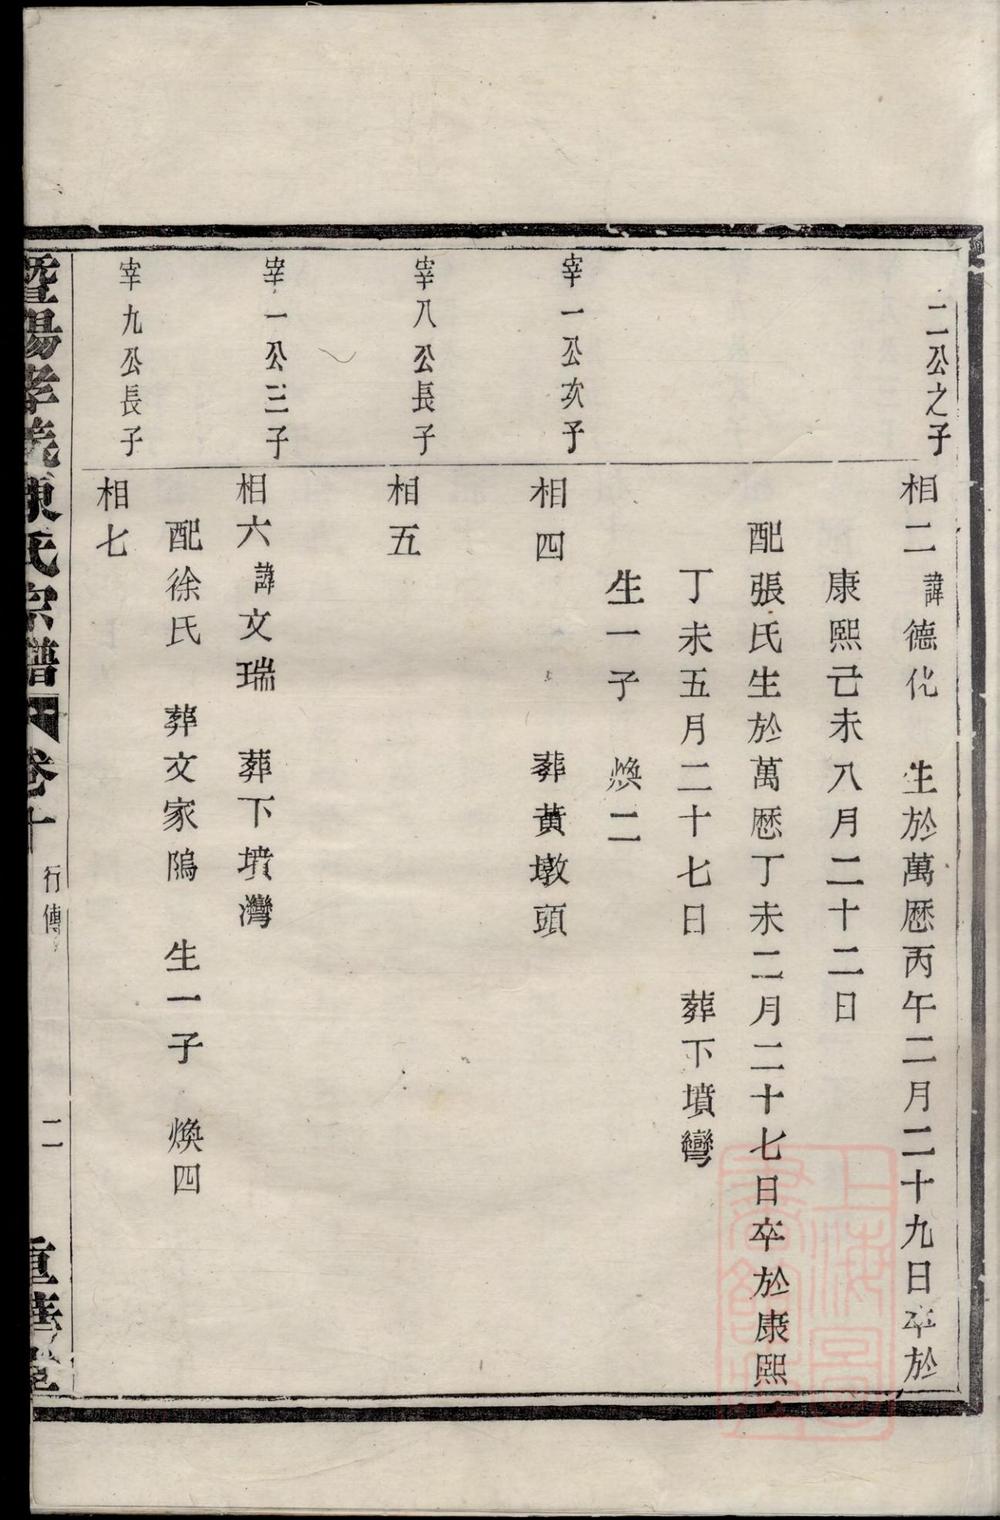 二公之子
相二 諱德化 生於萬厯丙午二月二十九日卒於
康熙己未八月二十二日
配張氏生於萬厯丁未二月二十七日卒於康熙
丁未五月二十七日 葬下墳彎
生一子 煥二
宰一公次子
相四 葬黃墩頭
宰八公長子
相五
宰一公三子
相六 諱文瑞 葬下墳灣
配徐氏 葬文家隖 生一子 煥四
宰九公長子
相七
暨陽孝義陳氏宗譜 卷十 行傳 二 重華堂
上海圖書館藏